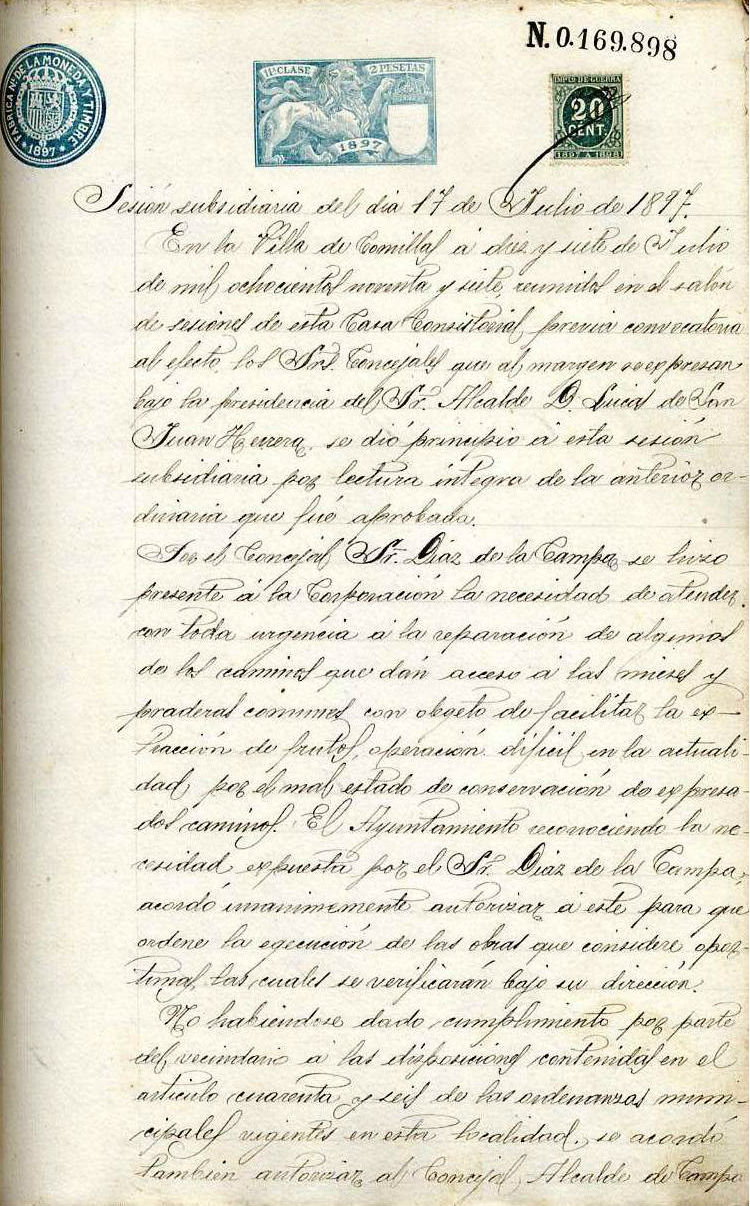 N.0.169.898
FABRICA NL DE LA MONEDA Y TIMBRE
1897
11ª CLASE 2 PESETAS
1897
IMPTO DE GUERRA
20
CENT.
1897 A 1898
Sesión subsidiaria del dia 17 de Julio de 1897.
En la Villa de Comillas á diez y siete de Julio
de mil ochocientos noventa y siete, reunidos en el salón
de sesiones de esta Casa Consistorial, previa convocatoria
al efecto, los Srs. Concejales que al margen se expresan
bajo la presidencia del Sr. Alcalde D. Lucas de San
Juan Herrera, se dió principio á esta sesión
subsidiaria por lectura íntegra de la anterior or-
dinaria que fué aprobada.
Por el Concejal Sr. Diaz de la Campa, se hizo
presente á la Corporación la necesidad de atender
con toda urgencia á la reparación de algunos
de los caminos que dán acceso á las mieses y
praderas comunes con objeto de facilitar la ex-
tracción de frutos, operación difícil en la actuali-
dad, por el mal estado de conservación de expresa-
dos caminos. El Ayuntamiento reconociendo la ne-
cesidad expuesta por el Sr. Diaz de la Campa,
acordó unanimemente autorizar á este para que
ordene la egecución de las obras que considere opor-
tunas, las cuales se verificarán bajo su dirección.
No habiendose dado cumplimiento por parte
del vecindario á las disposiciones contenidas en el
articulo cuarenta y seis de las ordenanzas muni-
cipales vigentes en esta localidad, se acordó
tambien autorizar al Concejal, Alcalde de Campo